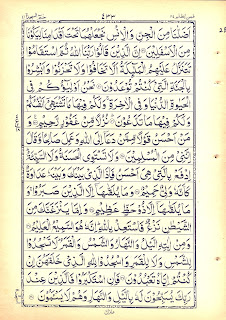 ٤٣٣
اَضَلّٰنَا مِنَ الْجِنِّ وَالْاِنْسِ نَجْعَلْهُمَا تَحْتَ اَقْدَامِنَا لِيَكُوْنَا
مِنَ الْاَسْفَلِيْنَ ۝ اِنَّ الَّذِيْنَ قَالُوْا رَبُّنَا اللّٰهُ ثُمَّ اسْتَقَامُوْا
تَتَنَزَّلُ عَلَيْهِمُ الْمَلٰٓئِكَةُ اَلَّا تَخَافُوْا وَلَا تَحْزَنُوْا وَاَبْشِرُوْا
بِالْجَنَّةِ الَّتِيْ كُنْتُمْ تُوْعَدُوْنَ ۝ نَحْنُ اَوْلِيٰٓؤُكُمْ فِي
الْحَيٰوةِ الدُّنْيَا وَفِي الْاٰخِرَةِ وَلَكُمْ فِيْهَا مَا تَشْتَهِيْ اَنْفُسُكُمْ
وَلَكُمْ فِيْهَا مَا تَدَّعُوْنَ ۝ نُزُلًا مِّنْ غَفُوْرٍ رَّحِيْمٍ ۝ وَ
مَنْ اَحْسَنُ قَوْلًا مِّمَّنْ دَعَآ اِلَى اللّٰهِ وَعَمِلَ صَالِحًا وَّقَالَ
اِنَّنِيْ مِنَ الْمُسْلِمِيْنَ ۝ وَلَا تَسْتَوِي الْحَسَنَةُ وَلَا السَّيِّئَةُ
اِدْفَعْ بِالَّتِيْ هِيَ اَحْسَنُ فَاِذَا الَّذِيْ بَيْنَكَ وَبَيْنَهٗ عَدَاوَةٌ
كَاَنَّهٗ وَلِيٌّ حَمِيْمٌ ۝ وَمَا يُلَقّٰىهَآ اِلَّا الَّذِيْنَ صَبَرُوْا وَ
مَا يُلَقّٰىهَآ اِلَّا ذُوْ حَظٍّ عَظِيْمٍ ۝ وَاِمَّا يَنْزَغَنَّكَ مِنَ
الشَّيْطٰنِ نَزْغٌ فَاسْتَعِذْ بِاللّٰهِ اِنَّهٗ هُوَ السَّمِيْعُ الْعَلِيْمُ ۝
وَمِنْ اٰيٰتِهِ الَّيْلُ وَالنَّهَارُ وَالشَّمْسُ وَالْقَمَرُ لَا تَسْجُدُوْا
لِلشَّمْسِ وَلَا لِلْقَمَرِ وَاسْجُدُوْا لِلّٰهِ الَّذِيْ خَلَقَهُنَّ اِنْ
كُنْتُمْ اِيَّاهُ تَعْبُدُوْنَ ۝ فَاِنِ اسْتَكْبَرُوْا فَالَّذِيْنَ عِنْدَ
رَبِّكَ يُسَبِّحُوْنَ لَهٗ بِالَّيْلِ وَالنَّهَارِ وَهُمْ لَا يَسْـَٔمُوْنَ ۝